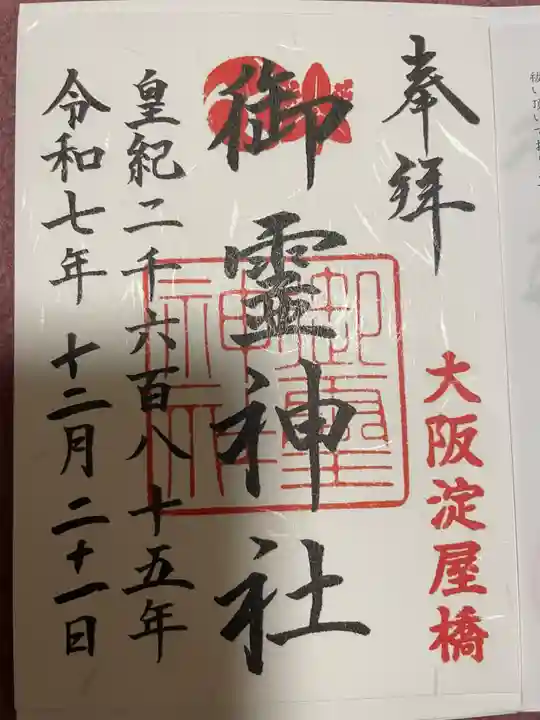 奉拝
大阪淀屋橋
御霊神社
御霊神社
皇紀二千六百八十五年
令和七年 十二月二十一日